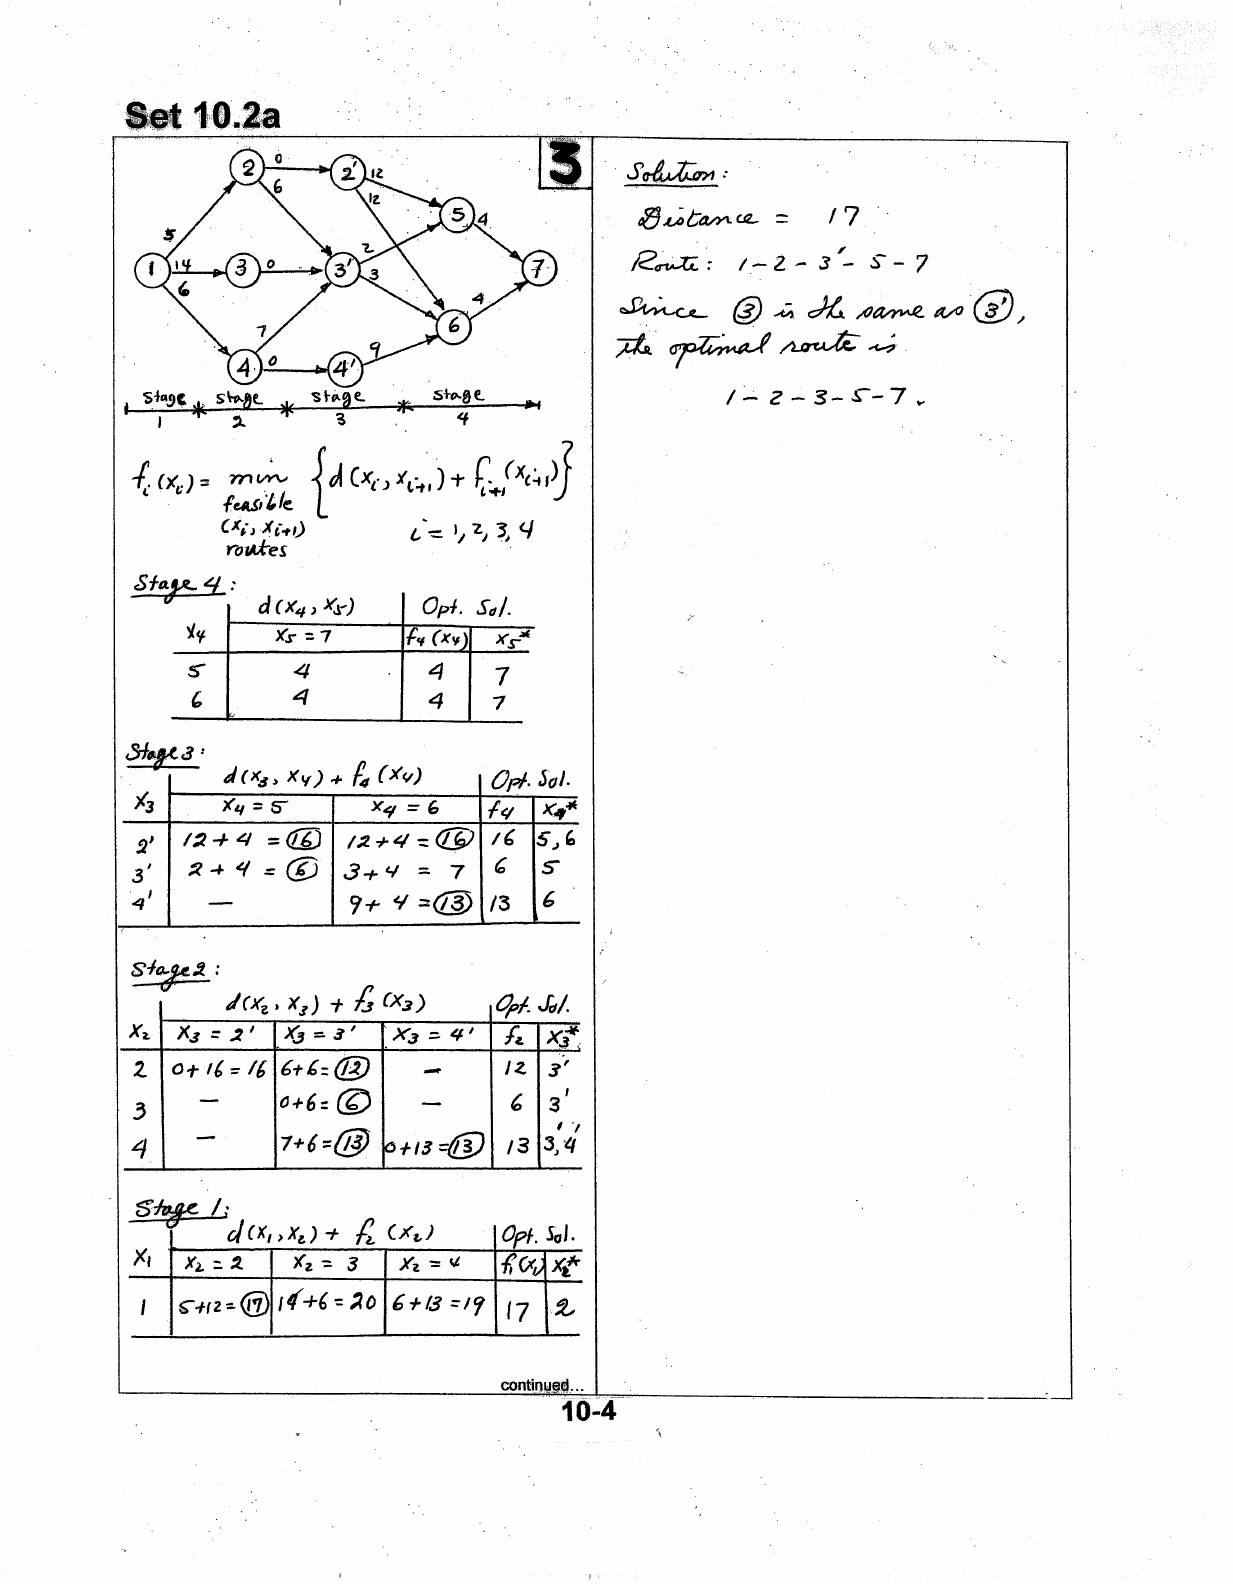 Set 10.2a
3
2 0 2' 12
6 12
5 4
5
1 14 3 0 3' 2 3 7
6
7 6 4
4 0 4' 9
stage 1 stage 2 stage 3 stage 4
f_i (x_i) = min { d (x_i, x_{i+1}) + f_{i+1} (x_{i+1}) }
feasible
(x_i, x_{i+1}) i = 1, 2, 3, 4
routes
Stage 4 :
d (x_4, x_5) Opt. Sol.
x_4 x_5 = 7 f_4 (x_4) x_5*
5 4 4 7
6 4 4 7
Stage 3 :
d (x_3, x_4) + f_4 (x_4) Opt. Sol.
x_3 x_4 = 5 x_4 = 6 f_4 x_4*
2' 12 + 4 = 16 12 + 4 = 16 16 5, 6
3' 2 + 4 = 6 3 + 4 = 7 6 5
4' — 9 + 4 = 13 13 6
Stage 2 :
d (x_2, x_3) + f_3 (x_3) Opt. Sol.
x_2 x_3 = 2' x_3 = 3' x_3 = 4' f_2 x_3*
2 0 + 16 = 16 6 + 6 = 12 — 12 3'
3 — 0 + 6 = 6 — 6 3'
4 — 7 + 6 = 13 0 + 13 = 13 13 3', 4'
Stage 1 :
d (x_1, x_2) + f_2 (x_2) Opt. Sol.
x_1 x_2 = 2 x_2 = 3 x_2 = 4 f_1 (x_1) x_2*
1 5 + 12 = 17 14 + 6 = 20 6 + 13 = 19 17 2
continued...
Solution :
Distance = 17
Route : 1 - 2 - 3' - 5 - 7
Since 3 is the same as 3',
the optimal route is
1 - 2 - 3 - 5 - 7.
10-4